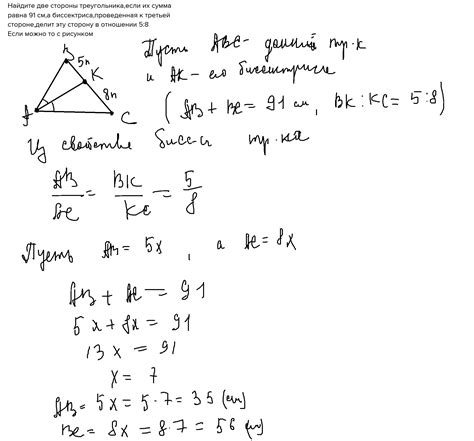 Найдите две стороны треугольника,если их сумма
равна 91 см,а биссектриса,проведенная к третьей
стороне,делит эту сторону в отношении 5:8
Если можно то с рисунком
B
5n
K
8n
A
C
Пусть ABC- данный тр.к
и AK- его биссектриса
(AB + BC = 91 см, BK:KC = 5:8)
Из свойства бисс-сы тр.ка
AB/AC = BK/KC = 5/8
Пусть AB = 5x, а AC = 8x
AB + AC = 91
5x + 8x = 91
13x = 91
x = 7
AB = 5x = 5·7 = 35 (см)
BC = 8x = 8·7 = 56 (см)